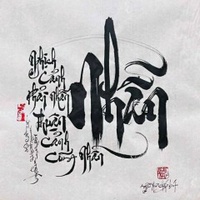 Nghịch
Cảnh
phải nhẫn
Thuận
Cảnh
Cũng Nhẫn
Nhẫn